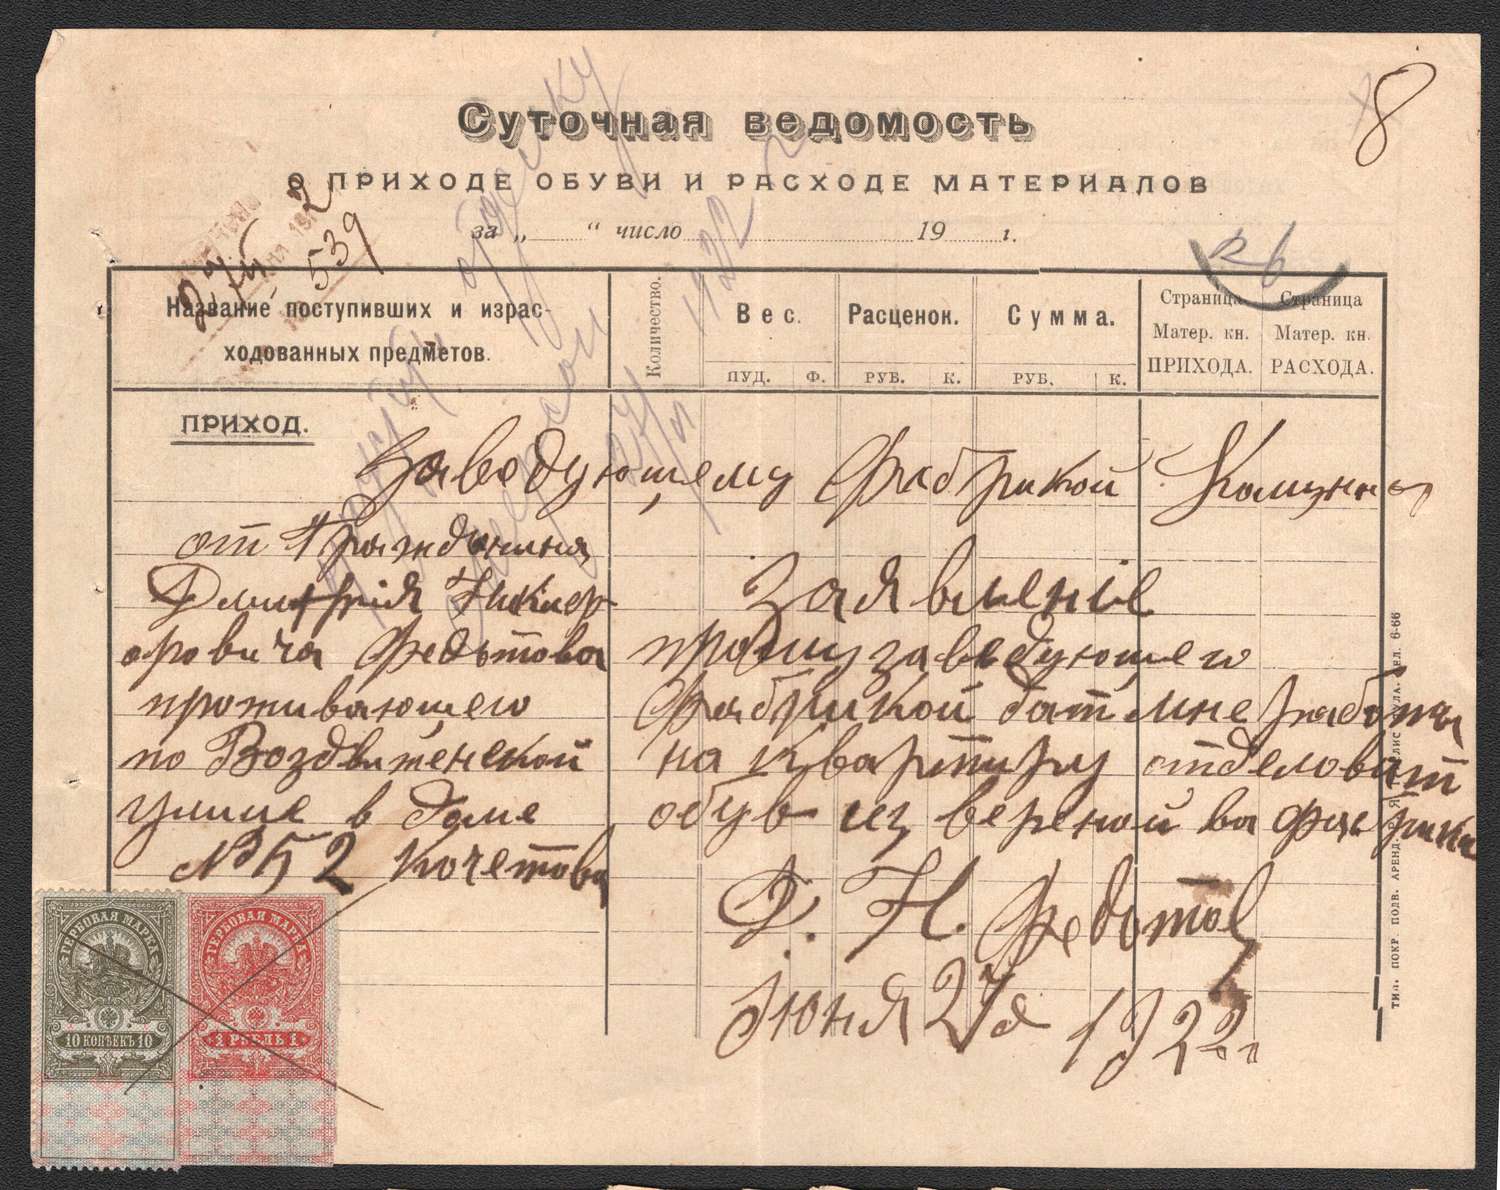 8
Суточная ведомость
О ПРИХОДЕ ОБУВИ И РАСХОДЕ МАТЕРИАЛОВ
за „ “ число 19 г.
539
Название поступивших и израсходованных предметов.
Количество.
Вес.
ПУД. Ф.
Расценок.
РУБ. К.
Сумма.
РУБ. К.
Страница Матер. кн. ПРИХОДА.
Страница Матер. кн. РАСХОДА.
1922
ПРИХОД.
Заведующему Фабрикой
от Гражданина
Дмитрія Никифо
ровича Федотова
проживающего
по Воздвиженской
улице в доме
№ 52 Кочетова
Заявленіе
прошу заведующего
Фабрикой дат мне работы
на квартиру отделоват
обув из вереной на Фабрики
Д. Н. Федотов
Июня 27 д 1922 г
ГЕРБОВАЯ МАРКА
10 КОПѢЕКЪ 10
ГЕРБОВАЯ МАРКА
1 РУБЛЬ 1